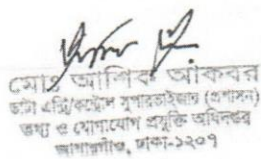 মোঃ আশিক আকবর
ডাটা এন্ট্রি/কন্ট্রোল সুপারভাইজার (প্রশাসন)
তথ্য ও যোগাযোগ প্রযুক্তি অধিদপ্তর
আগারগাঁও, ঢাকা-১২০৭